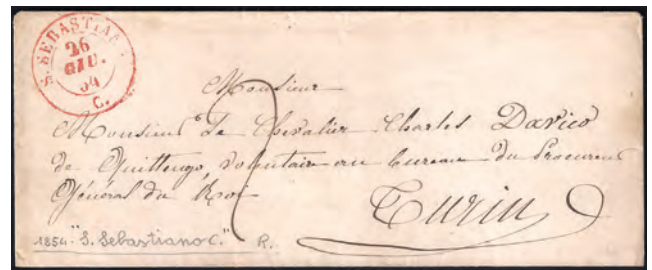 S. SEBASTIANO
26
GIU.
54
C.
Monsieur
Monsieur Le Chevalier Charles Davico
de Quittengo, volontaire au bureau du Procureur
Général du Roi
Turin
1854. "S. Sebastiano C." R.